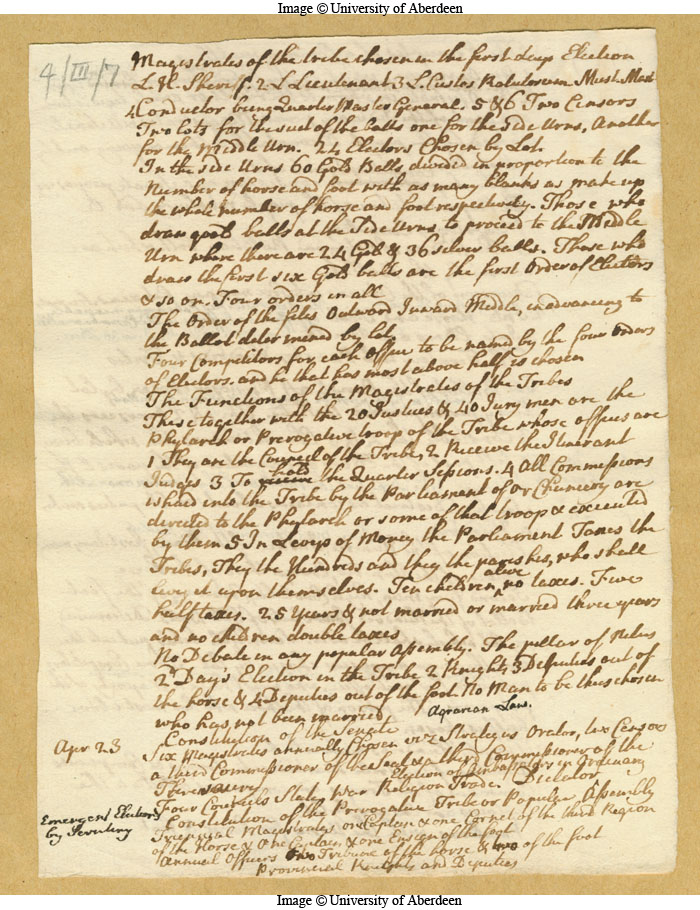 Image © University of Aberdeen
4/III/7
Magistrates of the tribe chosen in the first days Election
L. H. Sheriff. 2 L Lieutenant 3 L. Custos Rotulorum Must. Mast
4 Conductor being Quarter Master General. 5 & 6 Two Censors
Two lots for the use of the balls one for the Side Urns, Another
for the Middle Urn. 24 Electors Chosen by Lot.
In the side Urns 60 Gold Balls, divided in proportion to the
Number of horse and foot with as many blanks as make up
the whole number of horse and foot respectively. Those who
draw gold balls at the Side Urns to proceed to the Middle
Urn where there are 24 Gold & 36 silver balls. Those who
draw the first six Gold balls are the first Order of Electors
& so on. Four orders in all
The Order of the files Outward Inward Middle, in advancing to
the Ballot determined by lot
Four Competitors for each Office to be named by the four Orders
of Electors. and he that has most above half is chosen
The Functions of the Magistrates of the Tribes
These together with the 20 Justices & 40 Jury men are the
Phylarch or Prerogative troop of the Tribe whose offices are
1 They are the Council of the Tribe, 2 Receive the Itinerant
Judges 3 To hold the Quarter Sessions. 4 All Commissions
issued into the Tribe by the Parliament or Chancery are
directed to the Phylarch or some of that troop & executed
by them 5 In Levys of Money the Parliament Taxes the
Tribes, They the Hundreds and they the parishes, who shall
levy it upon themselves. Ten children alive no taxes. Five
half taxes. 25 Years & not married or married three years
and no children double taxes
No Debate in any popular Assembly. The pillar of Nilus
2d Day's Election in the Tribe 2 Knights 3 Deputies out of
the horse & 4 Deputies out of the foot No Man to be thus chosen
who has not been married
Agrarian Law.
Apr 23
Constitution of the Senate
Six Magistrates annually Chosen viz Strategus Orator, two Censors
a third Commissioner of the Seal & a third Commissioner of the
Threasury
Election of Ambassadors in Ordinary
Four Councils State War Religion Trade. Dictator
Emergent Elections
by Scrutiny
Constitution of the Prerogative Tribe or Popular Assembly
Triennial Magistrates one Captain & one Cornet of the third Region
of the Horse & One Captain & one Ensign of the foot
Annual Officers two Tribune of the horse & two of the foot
Provincial Knights and Deputies
Image © University of Aberdeen